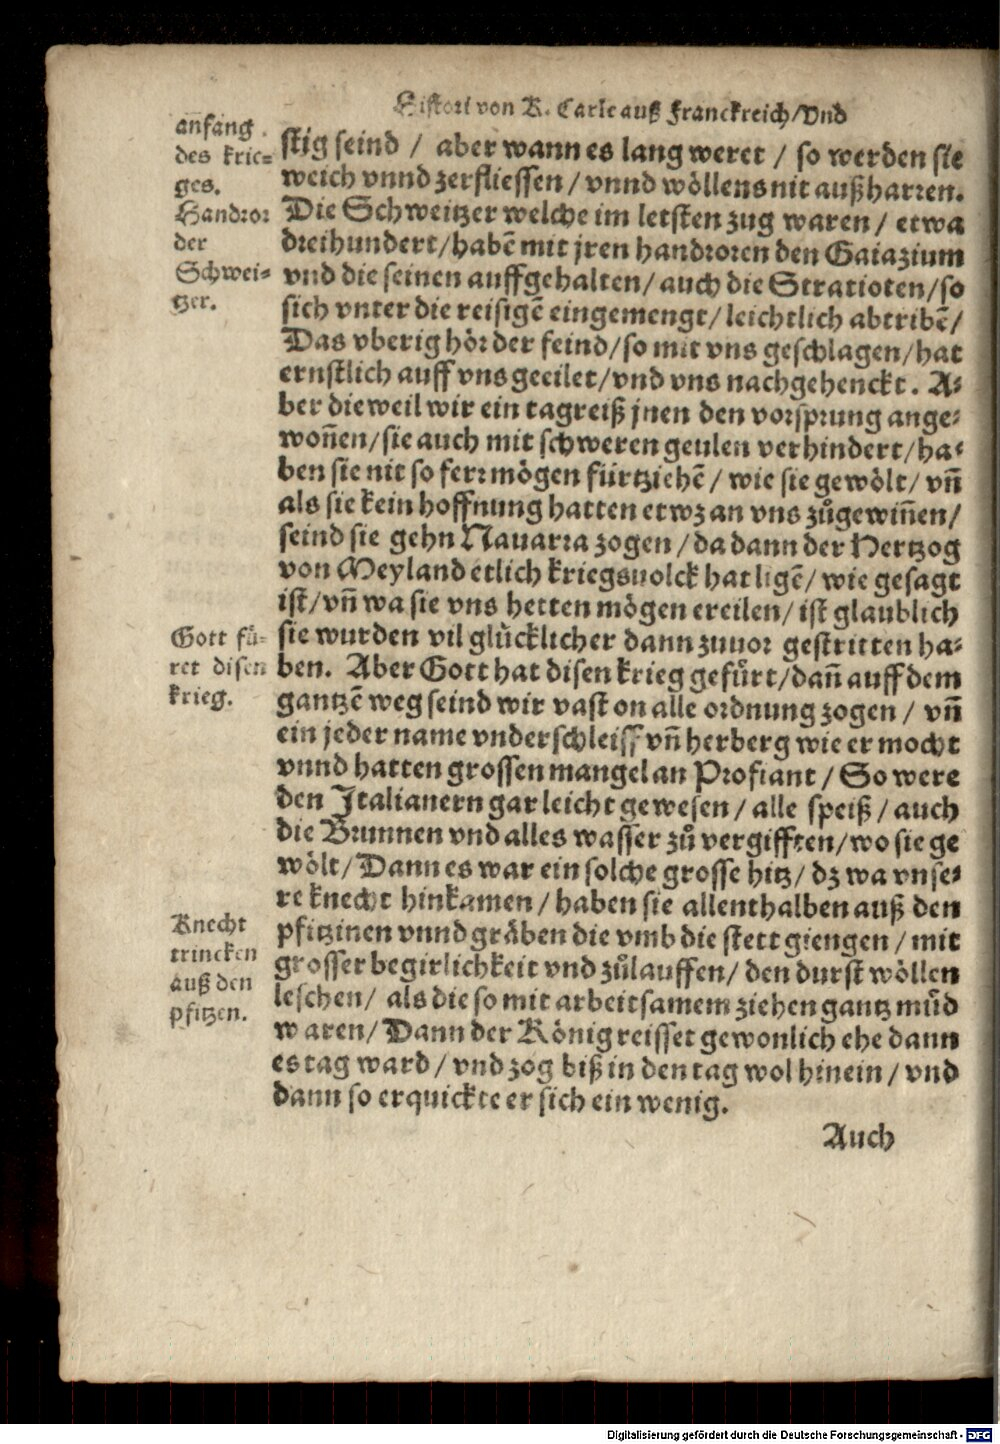 Histori von K. Carle auß Franckreich/Vnd
anfang
des krie=
ges.
Handror
der
Schwei=
tzer.
stig seind / aber wann es lang weret / so werden sie
weich vnnd zerfliessen / vnnd wöllens nit außharren.
Die Schweitzer welche im letsten zug waren / etwa
dreihundert/habẽ mit jren handroren den Gaiazium
vnd die seinen auffgehalten/ auch die Stratioten/so
sich vnter die reisigẽ eingemengt/ leichtlich abtribẽ/
Das vberig hör der feind/so mit vns geschlagen/hat
ernstlich auff vns geeilet/vnd vns nachgehenckt. A=
ber dieweil wir ein tagreiß jnen den vorsprung ange=
woñen/sie auch mit schweren geulen verhindert/ha=
ben sie nit so ferr mögen fürtziehẽ / wie sie gewölt/ vñ
als sie kein hoffnung hatten etwz an vns zůgewiñen/
seind sie gehn Nauarra zogen / da dann der Hertzog
von Meyland etlich kriegsuolck hat ligẽ/ wie gesagt
ist/vñ wa sie vns hetten mögen ereilen/ ist glaublich
sie wurden vil glücklicher dann zuuor gestritten ha=
ben. Aber Gott hat disen krieg gefůrt/dañ auff dem
gantzẽ weg seind wir vast on alle ordnung zogen / vñ
ein jeder name vnderschleiff vñ herberg wie er mocht
vnnd hatten grossen mangel an Profiant / So were
den Italianern gar leicht gewesen / alle speiß / auch
die Brunnen vnd alles wasser zů vergifften/wo sie ge
wölt/ Dann es war ein solche grosse hitz/ dz wa vnse=
re knecht hinkamen / haben sie allenthalben auß den
pfitzinen vnnd gräben die vmb die stett giengen / mit
grosser begirlichkeit vnd zůlauffen/ den durst wöllen
leschen/ als die so mit arbeitsamem ziehen gantz můd
waren/ Dann der König reisset gewonlich ehe dann
es tag ward / vnd zog biß in den tag wol hinein / vnd
dann so erquickte er sich ein wenig.
Gott fů=
ret disen
krieg.
Knecht
trincken
auß den
pfitzen.
Auch
Digitalisierung gefördert durch die Deutsche Forschungsgemeinschaft - DFG